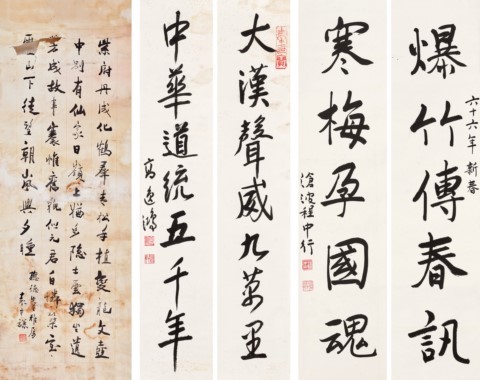 六十六年新春
爆竹傳春訊
寒梅孕國魂
滄波程中行
大漢聲威九萬里
中華道統五千年
高逸鴻
紫府丹成化鶴群青松手植變龍文壺
中別有仙家日嶺上猶多隱士雲獨坐遺
芳成故事褰帷舊貌似元君自憐築室
山下徒望朝嵐與夕曛